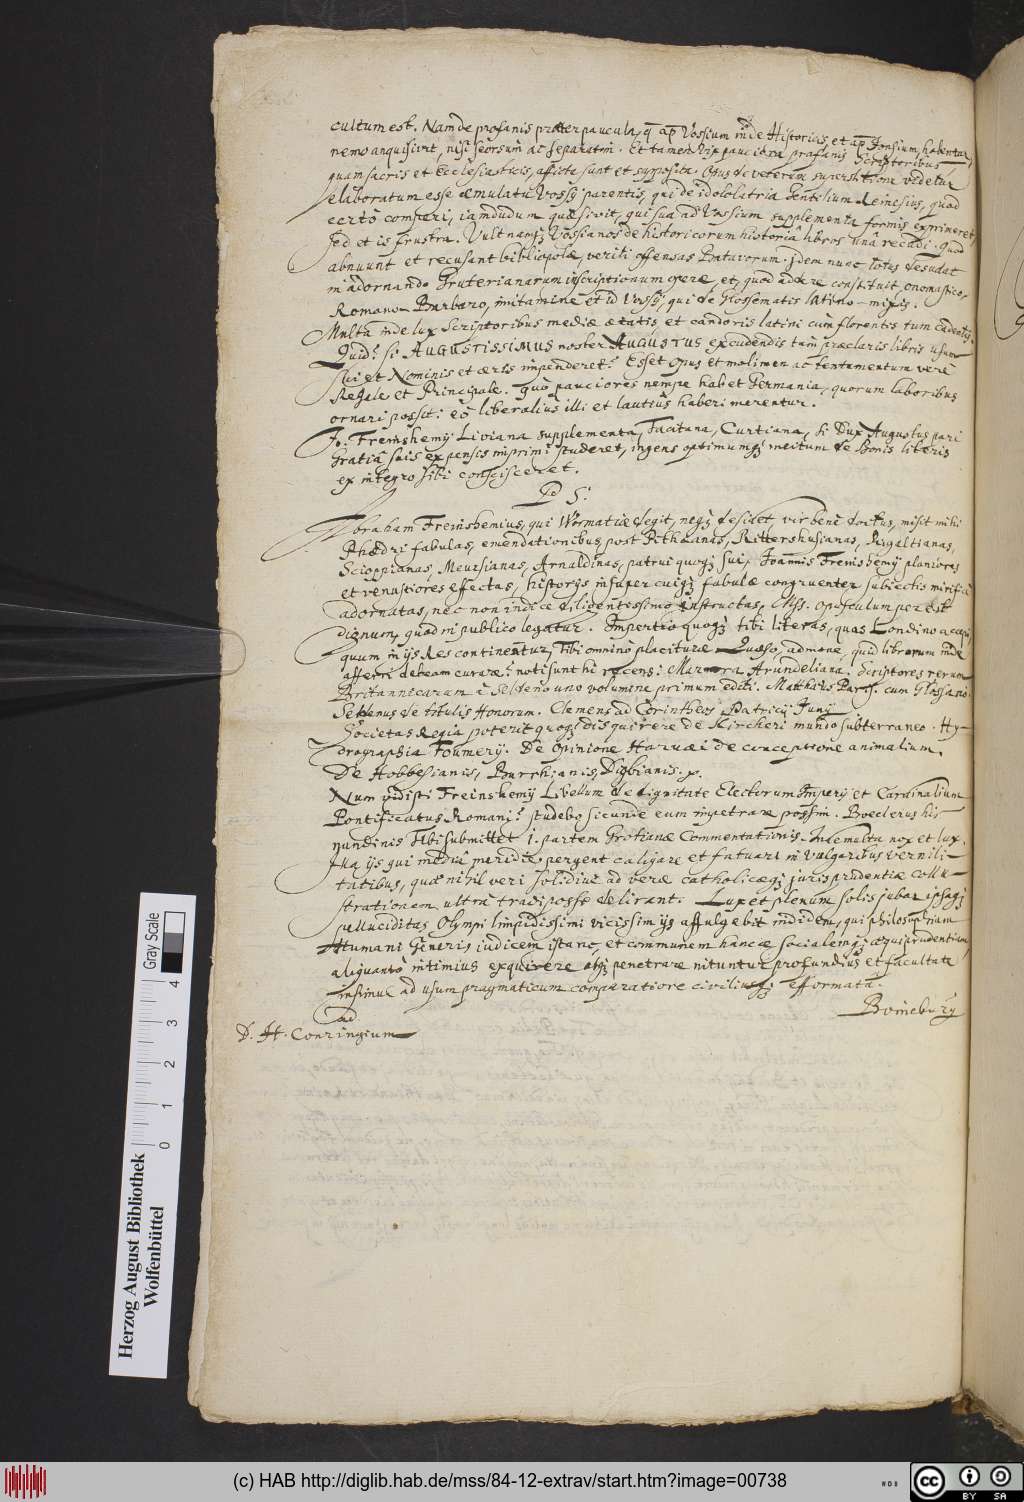 cultum est. Nam de profanis præter paucula, q̄ ap. Vossium in de Historicis, et ap. Jonsium, habentur,
nemo anquisivit, nisi seorsum ac separatim. Et tamen vix pauciora profanis Scriptoribus
quam sacris et Ecclesiasticis, afficta sunt et supposita. Opus de veterum superstitione videtur
elaboratum esse æmulatu Vossij parentis, qui de idololatria Gentilium. Reinesius, quod
certò comperi, iamdudum quæsivit, qui sua ad Vossium supplementa formis exprimeret,
sed et is frustra. Vult namq; Vossianos de historicorum historiâ libros unâ recudi. Quod
abnuunt et recusant bibliopolæ, veriti offensas Batavorum. Idem nunc totus desudat
in adornando Gruterianarum inscriptionum opere, et, quod addere constituit, onomastico,
Romano-Barbaro, imitamine et id Vossij, qui de Glossematis latino-mixis.
Multa inde lux Scriptoribus mediæ ætatis et candoris latini cùm florentis tum cadentis.
Quid? si AUGUSTISSIMUS noster AUGUSTUS excudendis tam præclaris libris usum
sui et Nominis et æris impenderet? Esset opus et molimen ac tentamentum verè
Regale et Principale. Quò pauciores nempe habet Germania, quorum laboribus
ornari possit: eò liberaliùs illi et lautiùs haberi merentur.
Jo. Freinshemij Liviana supplementa, Tacitana, Curtiana, si Dux Augustus pari
Gratiâ suis expensis imprimi studeret, ingens optimumq; meritum de Bonis literis
ex integro sibi conscisceret.
P S:
Abraham Freinshemius, qui Wormatiæ degit, neq; desidet, vir benè doctus, misit mihi
Phædri fabulas, emendationibus, post Pithœanas, Rittershusianas, Rigaltianas,
Scioppianas, Meursianas, Arnaldinas, patrui quoq; sui, Joannis Freinshemij planiores
et venustiores effectas, historijs insuper cuiq; fabulæ congruenter subiectis mirificè
adornatas, nec non indice diligentissimo instructas, Miss. Opusculum per est
dignum, quod in publico legatur. Impertio quoq; tibi literas, quas Londino accepi,
quum in ijs Res continentur, Tibi omnino placituræ. Quæso, admone, quid librorum inde
afferri debeam curare? noti sunt hi recens: Marmora Arundeliana. Scriptores rerum
Britannicarum à Seldeno uno volumine primum editi. Matthæus Paris. cum Glossario.
Seldenus de titulis Honorum. Clemens ad Corinthios Patricij Junij
Societas Regia poterit quoq; disquirere de Kircheri mundo subterraneo. Hy-
drographia Fournerij. De Opinione Harvæi de conceptione animalium.
De Hobbesianis, Digbianis.
Num vidisti Freinshemij Libellum de dignitate Electorum Imperij et Cardinalium
Pontificatus Romani? studebo sicunde eum impetrare possim. Boeclerus his
nundinis Tibi submittet 1. partem Grotianæ Commentationis. Inde multa nox et lux.
Illa ijs qui mediâ meridie pergent caligare et fatuari in vulgaribus vernili-
tatibus, quæ nihil veri solidive ad veræ catholicæq; jurisprudentiæ collu-
strationem ultrà tradi posse delirant. Lux et plenum solis jubar ipsaq;
pelluciditas Olympi limpidissimi vicissim ijs affulgebit indidem, qui philosophiam
Humani Generis iudicem istanc, et communem hancce socialemq; æquiprudentiam,
aliquantò intimius exquirere atq; penetrare nituntur profundiùs et facultate
insimul ad usum pragmaticum comparatiore civiliusq; efformatâ.
Boineburg
ad
D. H. Conringium
Gray Scale
0 1 2 3 4
Herzog August Bibliothek
Wolfenbüttel
(c) HAB http://diglib.hab.de/mss/84-12-extrav/start.htm?image=00738
cc BY SA